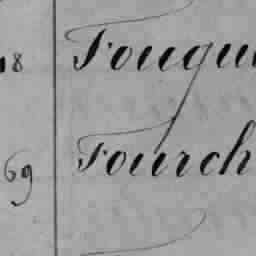 18 Fouqu
69 Fourch